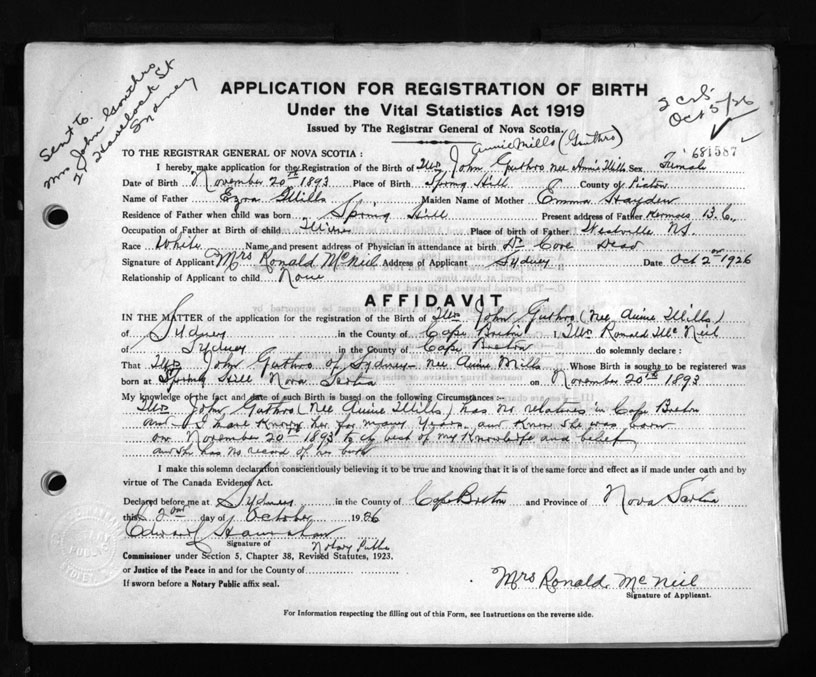 Sent to.
Mrs John Guthro
24 Havelock St
Sydney
2 cols
Oct 5/26
APPLICATION FOR REGISTRATION OF BIRTH
Under the Vital Statistics Act 1919
Issued by The Registrar General of Nova Scotia.
Annie Mills (Guthro)
681587
TO THE REGISTRAR GENERAL OF NOVA SCOTIA :
I hereby make application for the Registration of the Birth of Mrs John Guthro nee Annie Mills Sex Female
Date of Birth November 20th 1893 Place of Birth Spring Hill County of Pictou
Name of Father Ezra Mills Maiden Name of Mother Emma Hayden
Residence of Father when child was born Spring Hill Present address of Father B.C.
Occupation of Father at Birth of child Miner Place of Birth of Father Westville N.S.
Race White Name and present address of Physician in attendance at birth Dr Cove Dead
Signature of Applicant Mrs Ronald McNeil Address of Applicant Sydney Date Oct 2nd 1926
Relationship of Applicant to child None
AFFIDAVIT
IN THE MATTER of the application for the registration of the Birth of Mrs John Guthro (nee Annie Mills)
of Sydney in the County of Cape Breton I, Mrs Ronald McNeil
of Sydney in the County of Cape Breton do solemnly declare :
That Mrs John Guthro of Sydney nee Annie Mills Whose Birth is sought to be registered was
born at Spring Hill Nova Scotia on November 20th 1893
My knowledge of the fact and date of such Birth is based on the following Circumstances :-
Mrs John Guthro (nee Annie Mills) has no relatives in Cape Breton
and I have known her for many years and know she was born
on November 20th 1893 to the best of my knowledge and belief
and she has no record of her birth
I make this solemn declaration conscientiously believing it to be true and knowing that it is of the same force and effect as if made under oath and by
virtue of The Canada Evidence Act.
Declared before me at Sydney in the County of Cape Breton and Province of Nova Scotia
this 2nd day of October 1926
Signature of Notary Public
Commissioner under Section 5, Chapter 38, Revised Statutes, 1923.
or Justice of the Peace in and for the County of
If sworn before a Notary Public affix seal.
Mrs Ronald McNeil
Signature of Applicant.
For Information respecting the filling out of this Form, see Instructions on the reverse side.